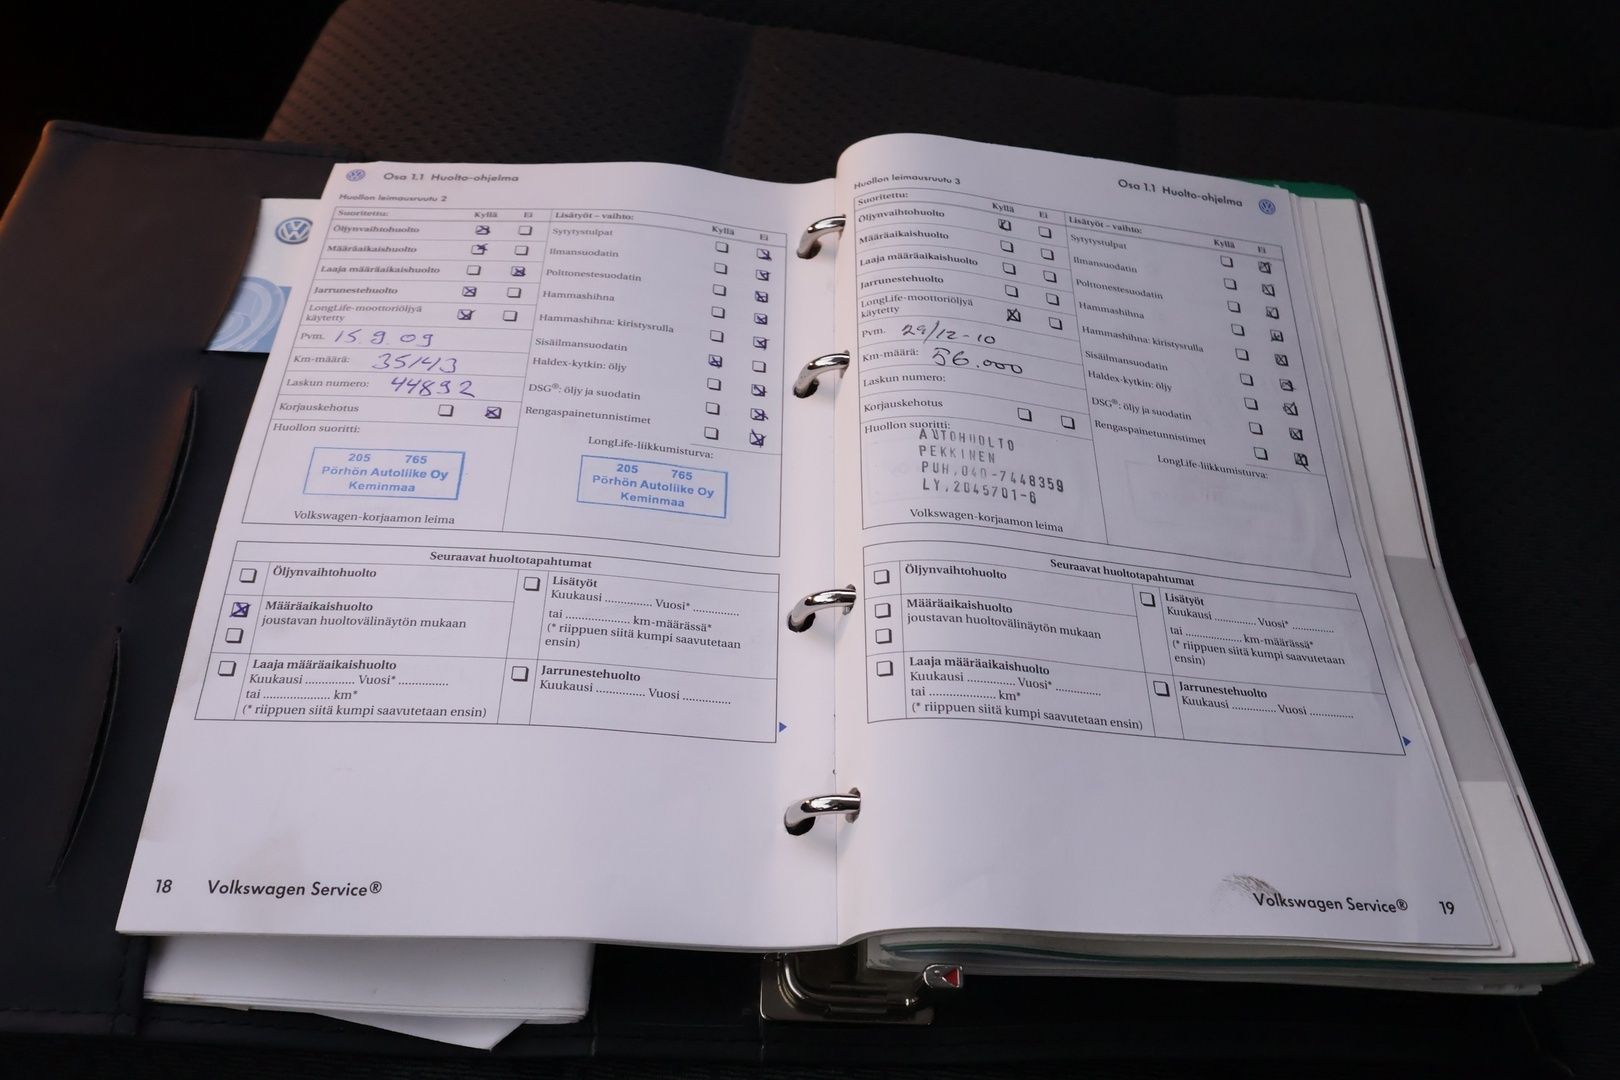 Osa 1.1 Huolto-ohjelma
Huollon leimausruutu 2
Suoritettu: Kyllä Ei
Öljynvaihtohuolto
Määräaikaishuolto
Laaja määräaikaishuolto
Jarrunestehuolto
LongLife-moottoriöljyä
käytetty
Pvm. 15.9.09
Km-määrä: 35143
Laskun numero: 44892
Korjauskehotus
Huollon suoritti:
205 765
Pörhön Autoliike Oy
Keminmaa
Volkswagen-korjaamon leima
Lisätyöt – vaihto: Kyllä Ei
Sytytystulpat
Ilmansuodatin
Polttonestesuodatin
Hammashihna
Hammashihna: kiristysrulla
Sisäilmansuodatin
Haldex-kytkin: öljy
DSG®: öljy ja suodatin
Rengaspainetunnistimet
LongLife-liikkumisturva:
205 765
Pörhön Autoliike Oy
Keminmaa
Seuraavat huoltotapahtumat
Öljynvaihtohuolto
Määräaikaishuolto
joustavan huoltovälinäytön mukaan
Laaja määräaikaishuolto
Kuukausi .............. Vuosi* ..............
tai .................. km*
(* riippuen siitä kumpi saavutetaan ensin)
Lisätyöt
Kuukausi .............. Vuosi* ..............
tai .................. km-määrässä*
(* riippuen siitä kumpi saavutetaan
ensin)
Jarrunestehuolto
Kuukausi .............. Vuosi ..............
18 Volkswagen Service®
Huollon leimausruutu 3
Osa 1.1 Huolto-ohjelma
Suoritettu: Kyllä Ei
Öljynvaihtohuolto
Määräaikaishuolto
Laaja määräaikaishuolto
Jarrunestehuolto
LongLife-moottoriöljyä
käytetty
Pvm. 29/12-10
Km-määrä: 56.000
Laskun numero:
Korjauskehotus
Huollon suoritti:
AUTOHUOLTO
PEKKINEN
PUH,040-7448359
LY,2045701-6
Volkswagen-korjaamon leima
Lisätyöt – vaihto: Kyllä Ei
Sytytystulpat
Ilmansuodatin
Polttonestesuodatin
Hammashihna
Hammashihna: kiristysrulla
Sisäilmansuodatin
Haldex-kytkin: öljy
DSG®: öljy ja suodatin
Rengaspainetunnistimet
LongLife-liikkumisturva:
Seuraavat huoltotapahtumat
Öljynvaihtohuolto
Määräaikaishuolto
joustavan huoltovälinäytön mukaan
Laaja määräaikaishuolto
Kuukausi .............. Vuosi* ..............
tai .................. km*
(* riippuen siitä kumpi saavutetaan ensin)
Lisätyöt
Kuukausi .............. Vuosi* ..............
tai .................. km-määrässä*
(* riippuen siitä kumpi saavutetaan
ensin)
Jarrunestehuolto
Kuukausi .............. Vuosi ..............
Volkswagen Service® 19